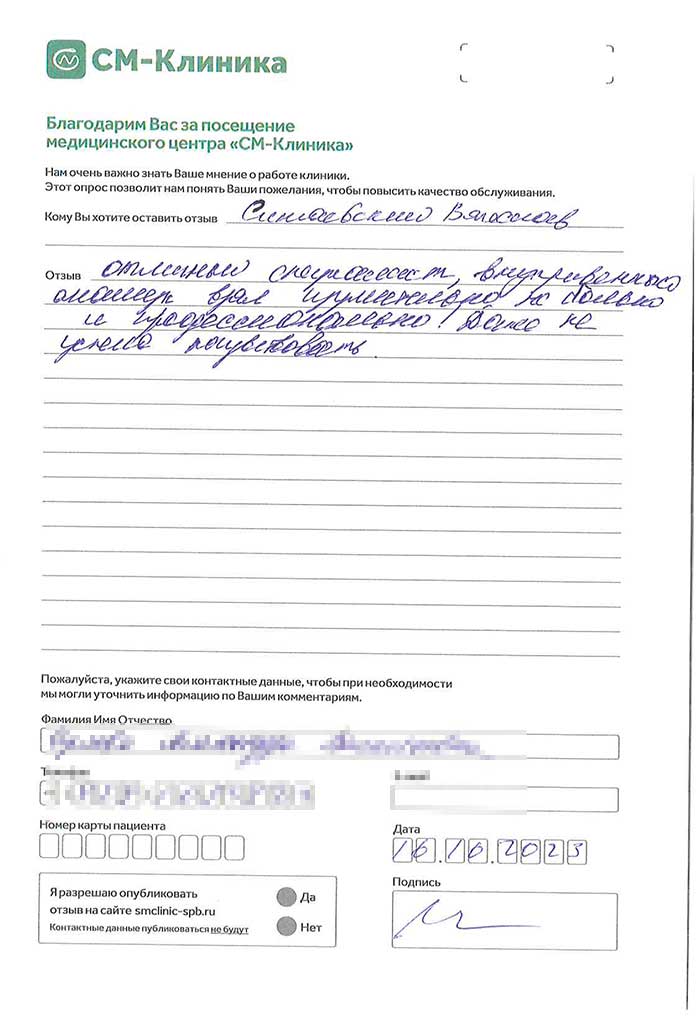 СМ-Клиника
Благодарим Вас за посещение
медицинского центра «СМ-Клиника»
Нам очень важно знать Ваше мнение о работе клиники.
Этот опрос позволит нам понять Ваши пожелания, чтобы повысить качество обслуживания.
Кому Вы хотите оставить отзыв Вячеслав
Отзыв отличный специалист, внутривенный
анализ взял не больно
и профессионально! Даже не
успела почувствовать.
Пожалуйста, укажите свои контактные данные, чтобы при необходимости
мы могли уточнить информацию по Вашим комментариям.
Фамилия Имя Отчество
Номер карты пациента
Дата
16.10.2023
Подпись
Я разрешаю опубликовать
отзыв на сайте smclinic-spb.ru
Контактные данные публиковаться не будут
Да
Нет